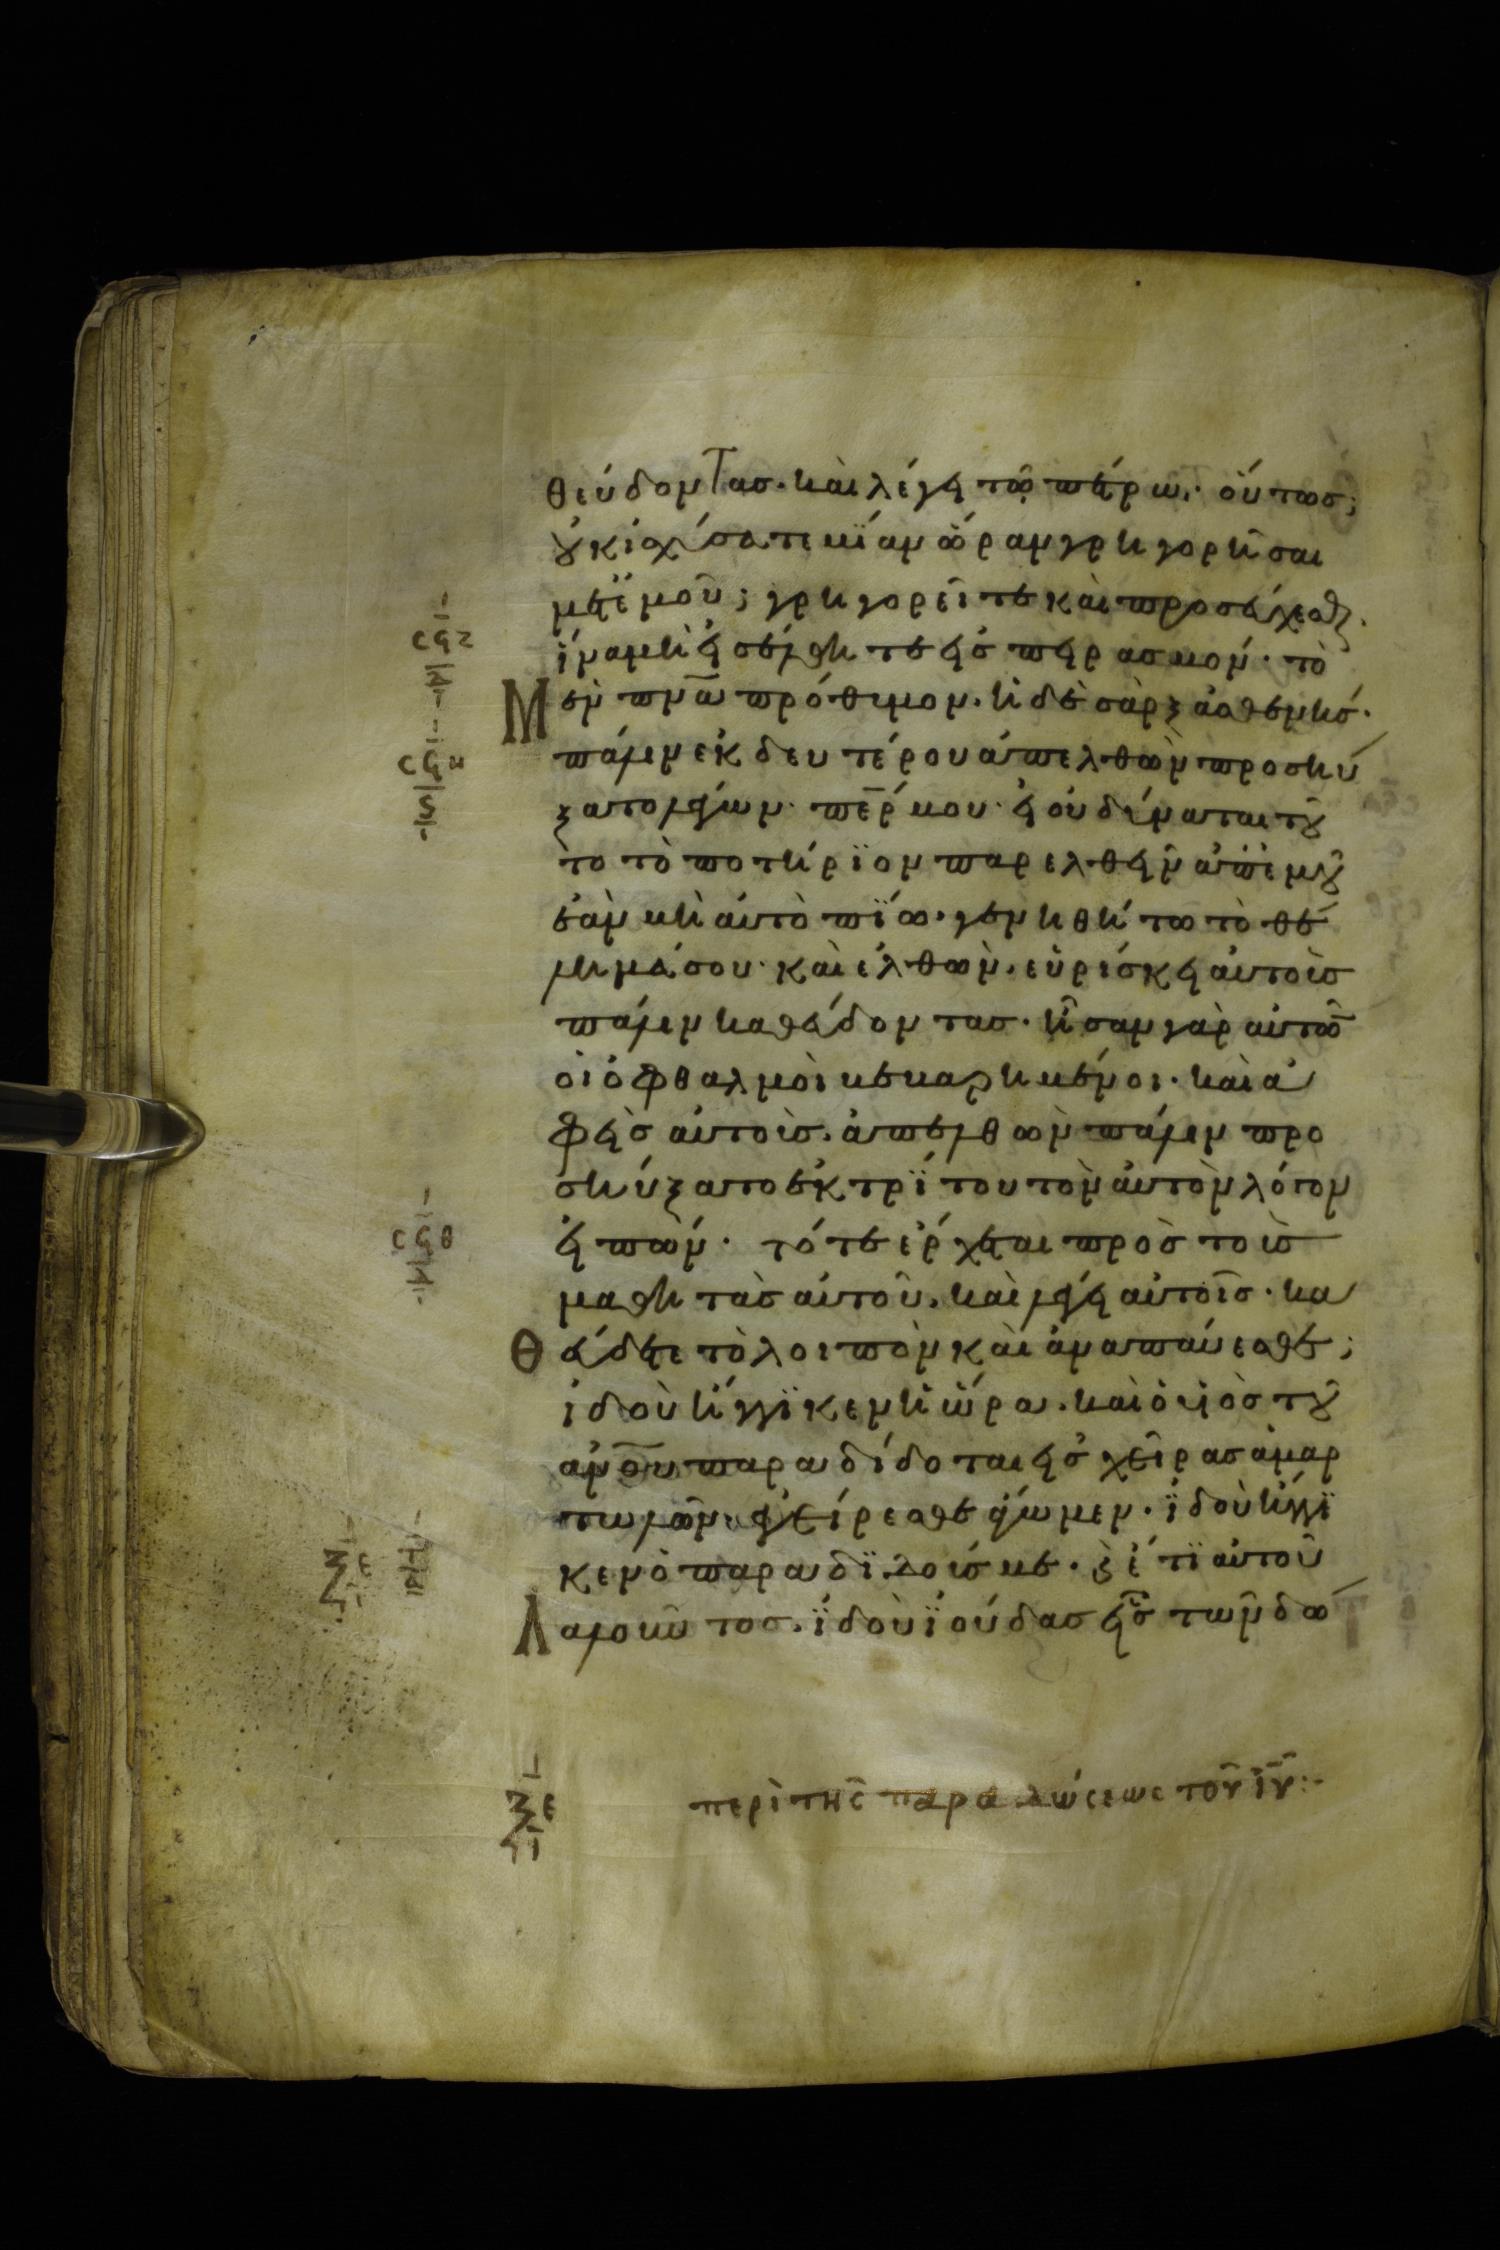 θεύδοντας. καὶ λέγει τῷ πέτρω. οὕτως;
οὐκ ἰσχύσατε μΐαν ὥραν γρηγορῆσαι
μετ' ἐμοῦ; γρηγορεῖτε καὶ προσεύχεσθε.
ἵνα μὴ εἰσέλθητε εἰς πειρασμόν. τὸ
μὲν πνα πρόθυμον. ἡ δὲ σὰρξ ἀσθενής.
πάλιν ἐκ δευτέρου ἀπελθὼν προσηύ
ξατο λέγων. περ μου. εἰ οὐ δύναται τοῦ
το τὸ ποτήρϊον παρελθεῖν ἀπ' ἐμοῦ
ἐὰν μὴ αὐτὸ πΐω. γενηθήτω τὸ θέ
λημά σου. καὶ ἐλθὼν. εὑρίσκει αὐτοὺς
πάλιν καθεύδοντας. ἦσαν γὰρ αὐτῶ
οἱ ὀφθαλμοὶ βεβαρημένοι. καὶ ἀ
φεὶς αὐτοὺς. ἀπελθὼν πάλιν προ
σηύξατο ἐκ τρΐτου τὸν αὐτὸν λόγον
εἰπών. τότε ἔρχεται πρὸς τοὺς
μαθητὰς αὐτοῦ. καὶ λέγει αὐτοῖς. κα
θεύδετε τὸ λοιπὸν καὶ ἀναπαύεσθε;
ἰδοὺ ἤγγϊκεν ἡ ὥρα. καὶ ὁ υἱὸς τοῦ
ανου παραδίδοται εἰς χεῖρας ἁμαρ
τωλῶν. ἐγείρεσθε ἄγωμεν. ϊδοὺ ἤγγϊ
κεν ὁ παραδϊδούς με. καὶ ἔτϊ αὐτοῦ
λαλοῦντος. ϊδοὺ ϊούδας εἷς τῶν δώ
περὶ τῆς παραδώσεως τοῦ ιυ:-